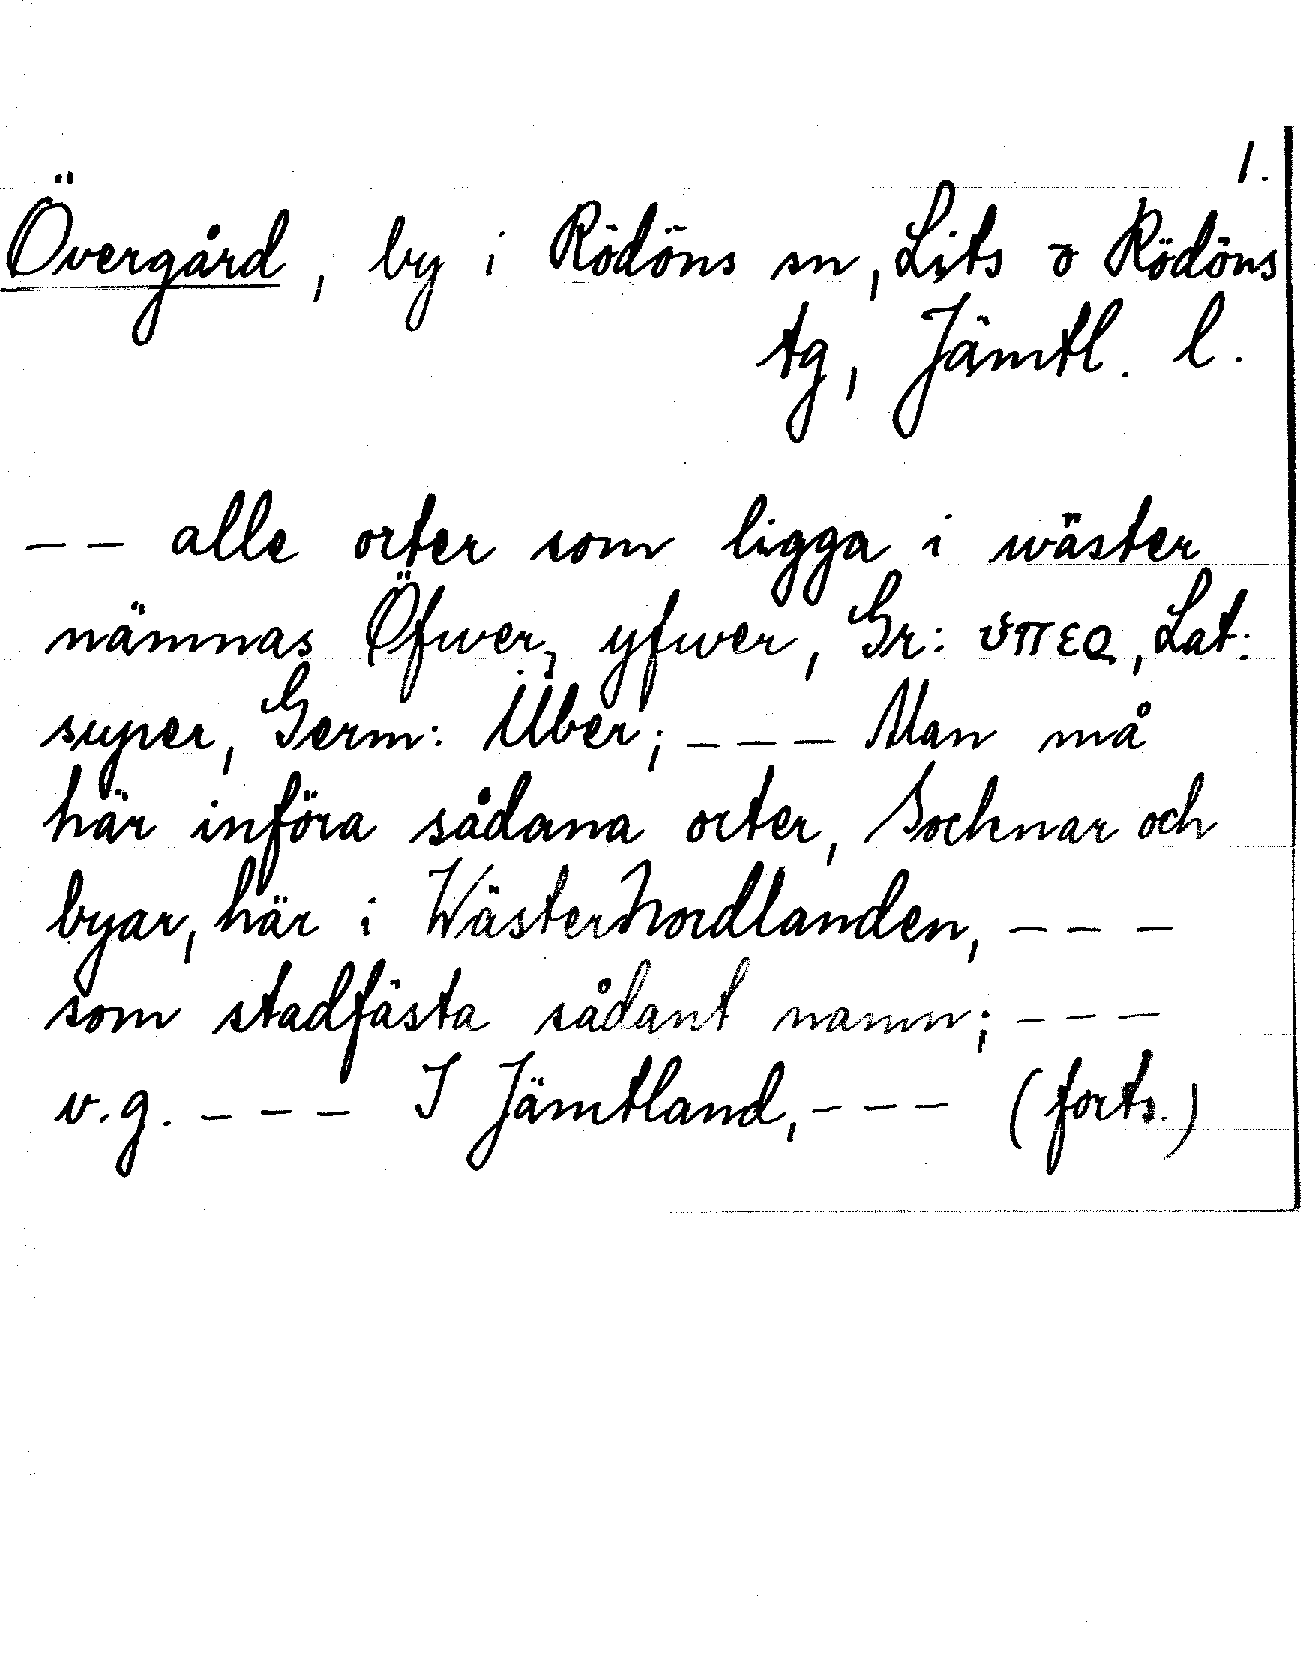 1.
Övergård, by i Rödöns sn, Lits o Rödöns
tg, Jämtl. l.
-- alle orter som ligga i wäster
nämnas Öfwer, yfwer, Gr: υπερ, Lat:
super, Germ: Uber; --- Man må
här införa sådana orter, Sochnar och
byar, här i WästerNordlanden, ---
som stadfästa sådant namn; ---
v.g. --- I Jämtland, --- (forts.)